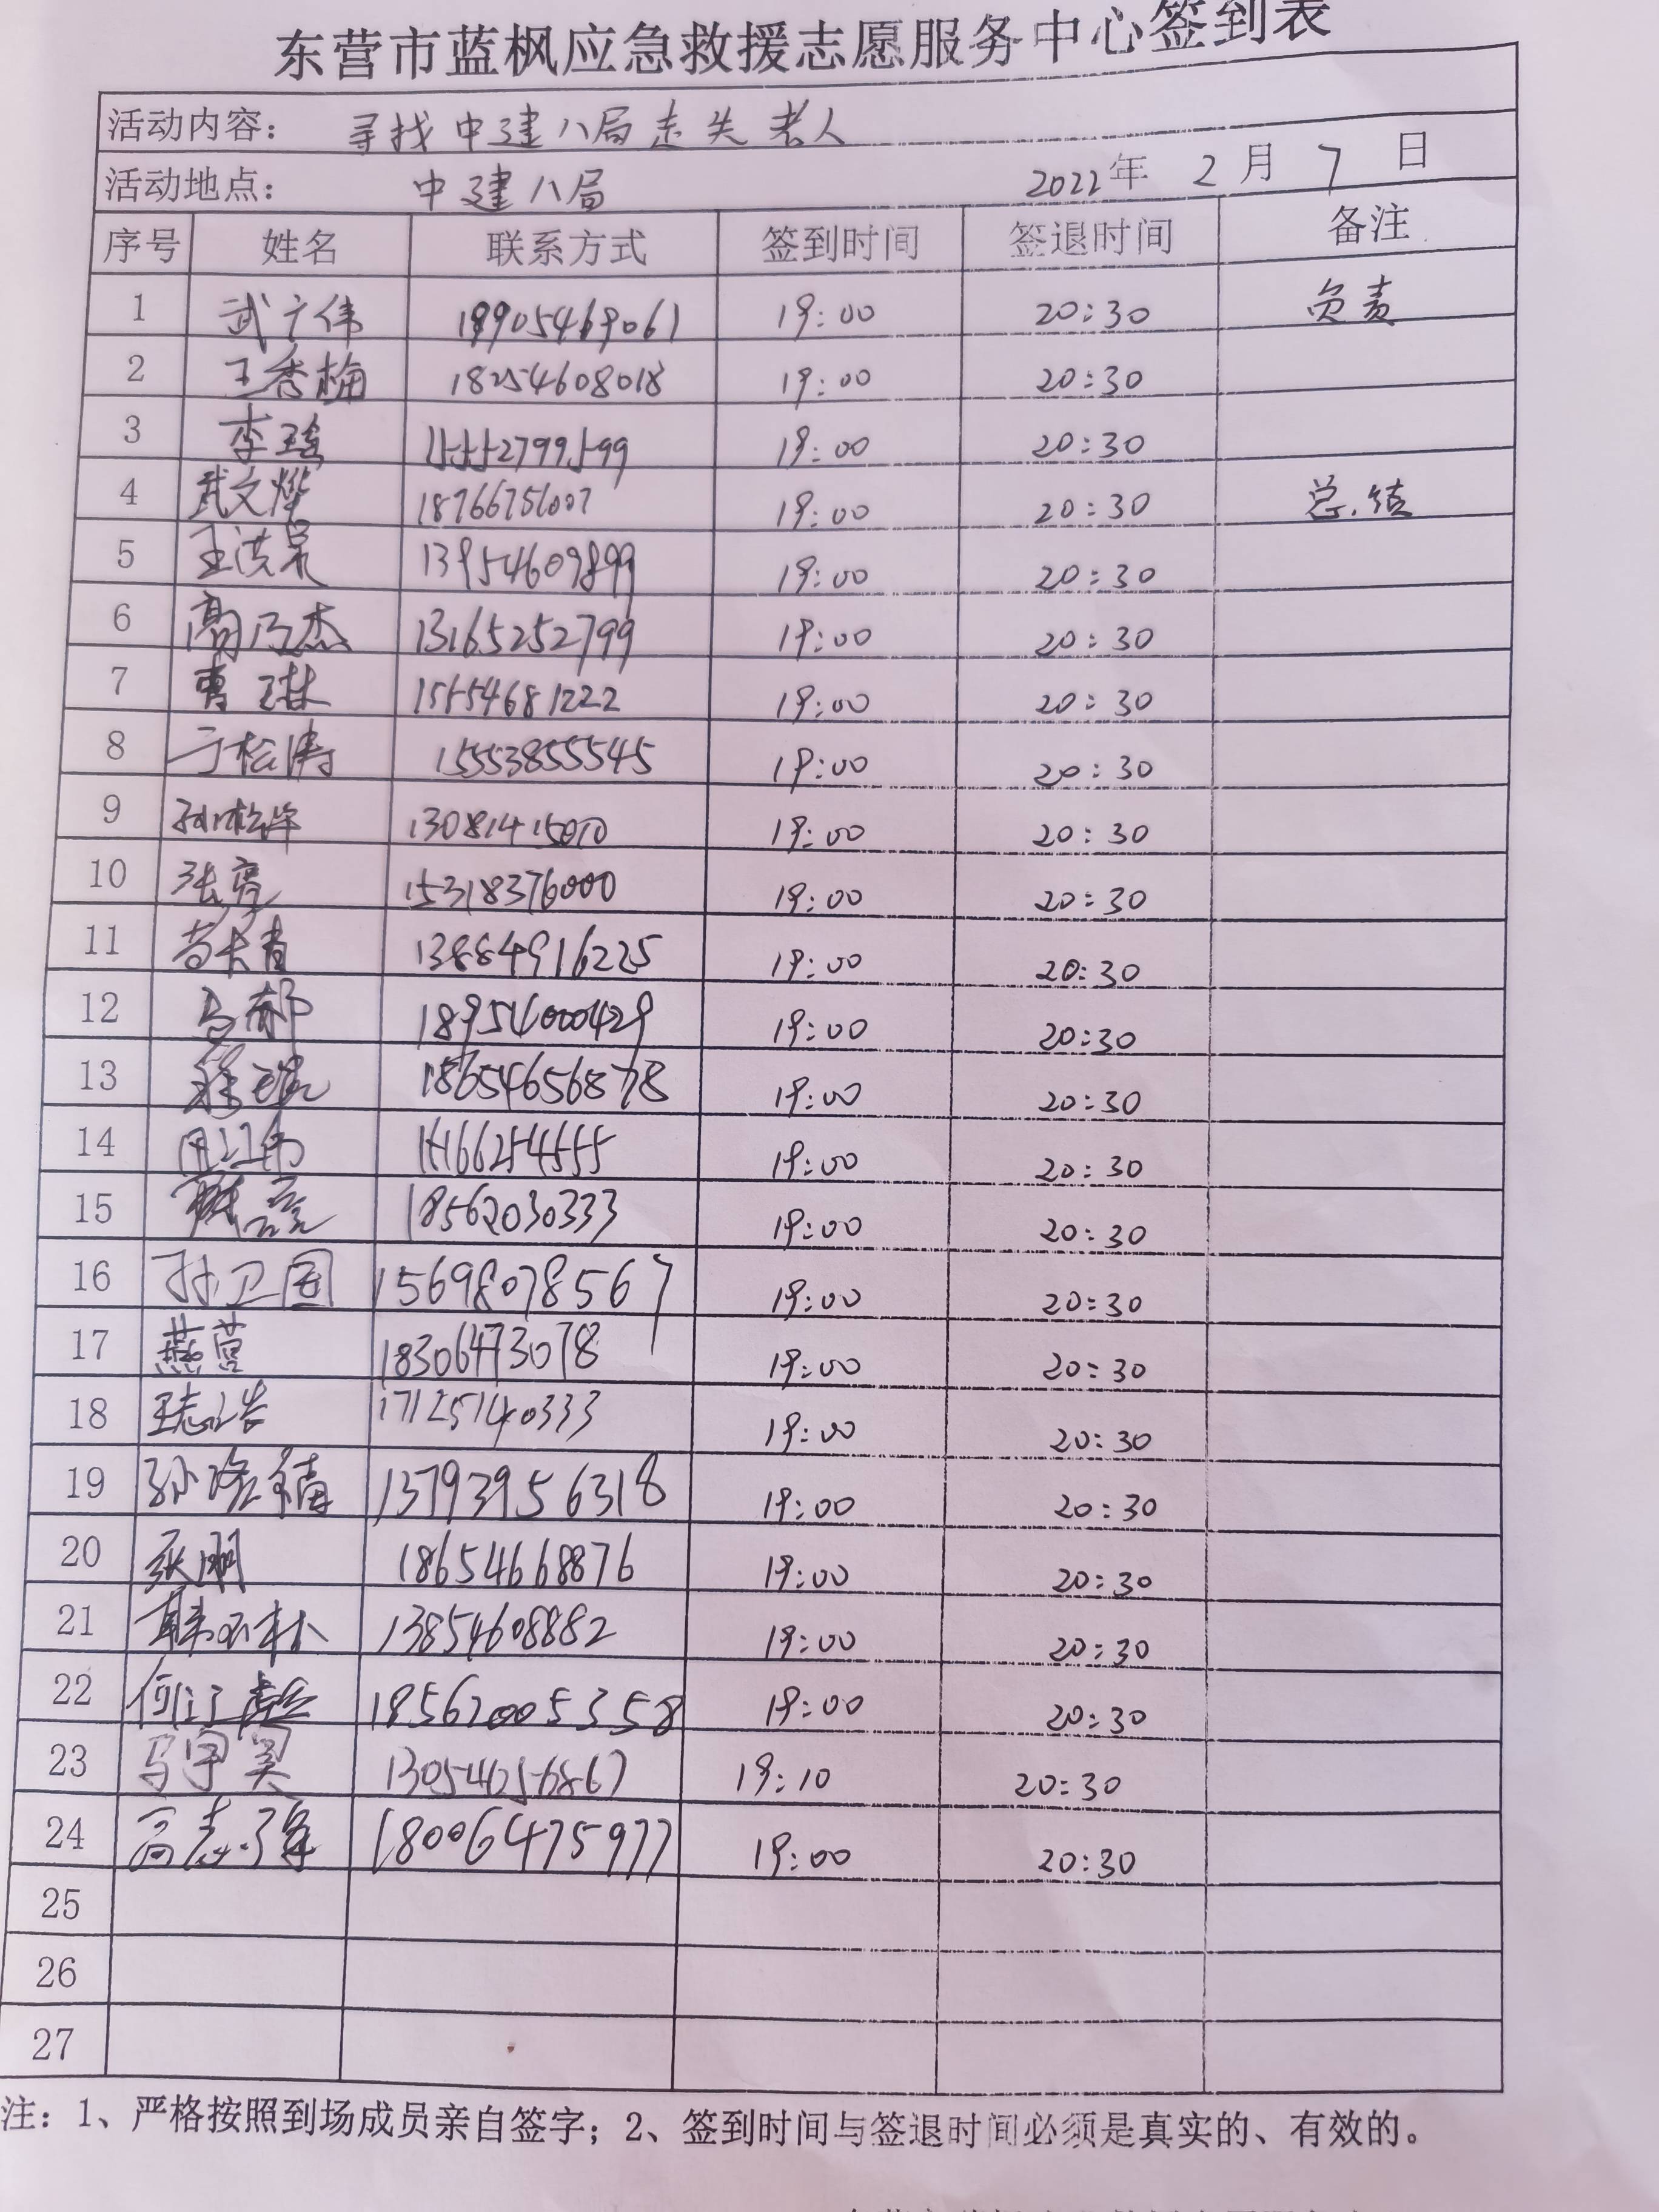 东营市蓝枫应急救援志愿服务中心签到表
活动内容： 寻找中建八局走失老人
活动地点： 中建八局 2022年 2月 7日
序号 姓名 联系方式 签到时间 签退时间 备注
1 武广伟 18905469061 19:00 20:30 负责
2 王秀梅 18254608018 19:00 20:30
3 李瑶 15552799599 19:00 20:30
4 武文烨 18766756007 19:00 20:30 总结
5 王洪泉 13954609899 19:00 20:30
6 高乃杰 13165252799 19:00 20:30
7 曹琳 15554681222 19:00 20:30
8 于松涛 15553855545 19:00 20:30
9 孙松 13081415010 19:00 20:30
10 张亮 15318376000 19:00 20:30
11 苟长青 13884916225 19:00 20:30
12 马郝 18954000429 19:00 20:30
13 徐琨 18654656878 19:00 20:30
14 15166254555 19:00 20:30
15 18562030333 19:00 20:30
16 孙卫国 15698078567 19:00 20:30
17 燕营 18306473078 19:00 20:30
18 王志浩 17125140333 19:00 20:30
19 孙 13793956318 19:00 20:30
20 张明 18654668876 19:00 20:30
21 韩 13854608882 19:00 20:30
22 何江 18562005358 19:00 20:30
23 马宇昊 13054656867 19:10 20:30
24 高志强 18006475977 19:00 20:30
25
26
27
注：1、严格按照到场成员亲自签字；2、签到时间与签退时间必须是真实的、有效的。